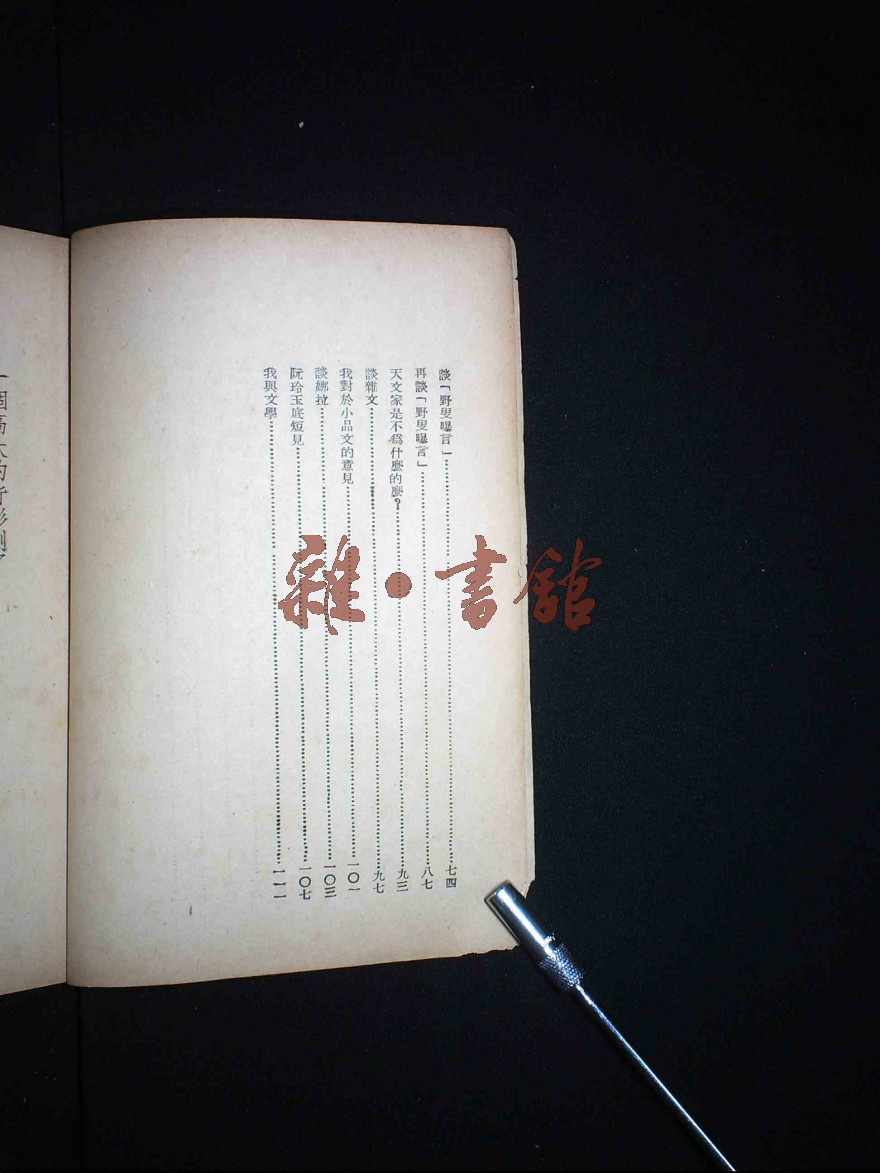 談「野叟曝言」七四
再談「野叟曝言」八七
天文家是不爲什麼的麼？九三
談雜文九七
我對於小品文的意見一〇一
談娜拉一〇三
阮玲玉底短見一〇七
我與文學一一一
雜·書館